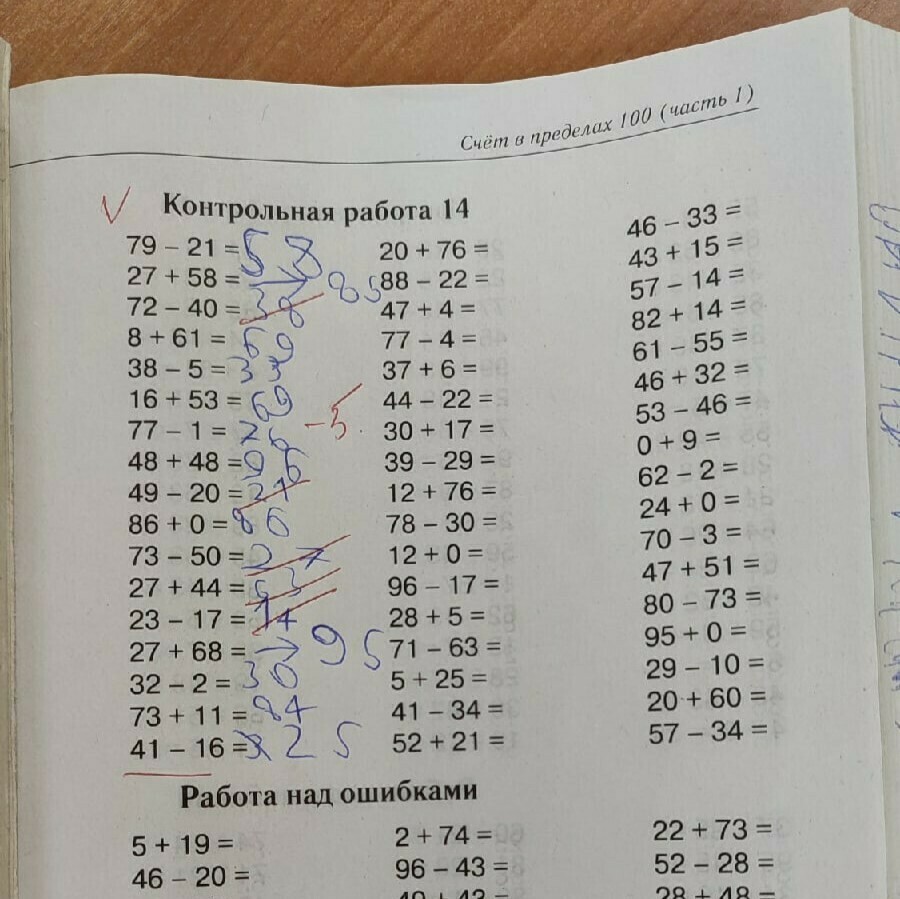 Счёт в пределах 100 (часть 1)
V Контрольная работа 14
79 – 21 = 58
27 + 58 = 85
72 – 40 = 38
8 + 61 = 69
38 – 5 = 33
16 + 53 = 69
77 – 1 = 76
48 + 48 = 96
49 – 20 = 27
86 + 0 = 86
73 – 50 =
27 + 44 =
23 – 17 = 14
27 + 68 = 95
32 – 2 = 30
73 + 11 = 84
41 – 16 = 25
-5
20 + 76 =
88 – 22 =
47 + 4 =
77 – 4 =
37 + 6 =
44 – 22 =
30 + 17 =
39 – 29 =
12 + 76 =
78 – 30 =
12 + 0 =
96 – 17 =
28 + 5 =
71 – 63 =
5 + 25 =
41 – 34 =
52 + 21 =
46 – 33 =
43 + 15 =
57 – 14 =
82 + 14 =
61 – 55 =
46 + 32 =
53 – 46 =
0 + 9 =
62 – 2 =
24 + 0 =
70 – 3 =
47 + 51 =
80 – 73 =
95 + 0 =
29 – 10 =
20 + 60 =
57 – 34 =
Работа над ошибками
5 + 19 =
46 – 20 =
2 + 74 =
96 – 43 =
22 + 73 =
52 – 28 =
28 + 48 =